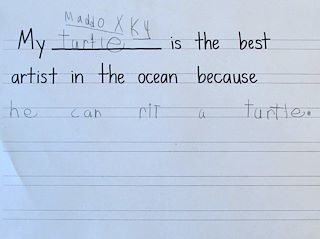 Maddox Ky
My turtle is the best
artist in the ocean because
he can rit a turtle.